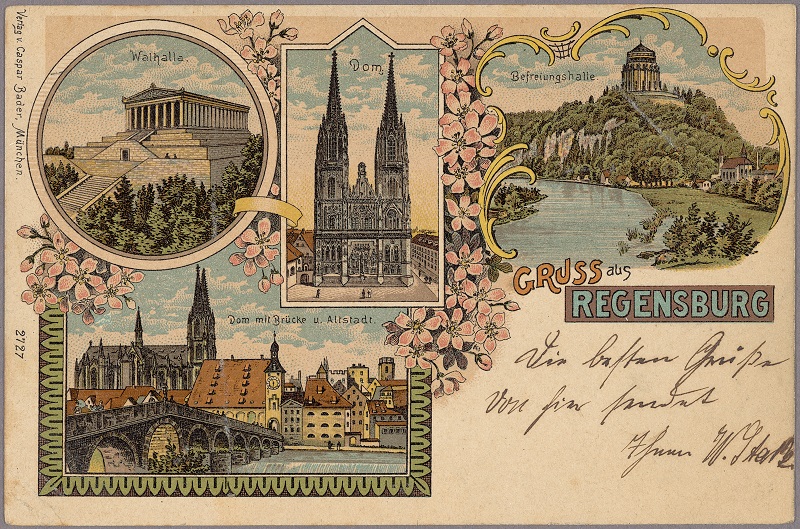 Verlag v. Caspar Bader, München.
2727
Walhalla.
Dom
Befreiungshalle
Dom mit Brücke u. Altstadt.
GRUSS aus
REGENSBURG
Die besten Grüße
von hier sendet
Ihnen W.